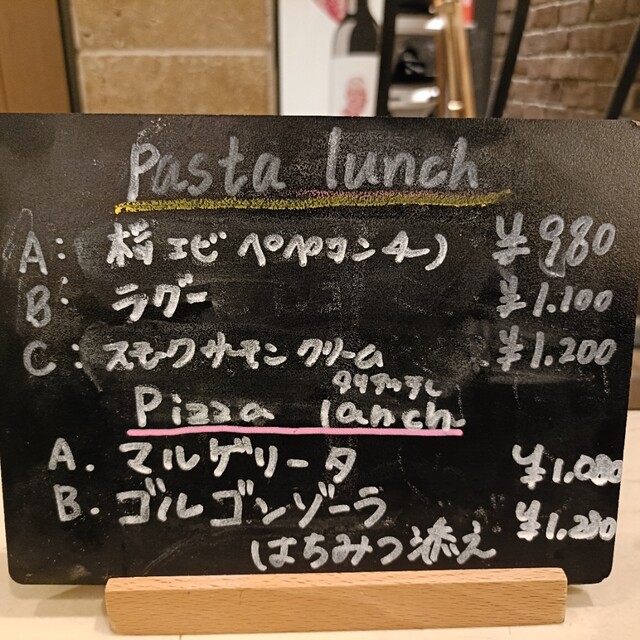 Pasta lunch
A: 桜エビ ペペロンチーノ ¥980
B: ラグー ¥1.100
C: スモークサーモン クリーム ¥1.200
タリアテレ
Pizza lanch
A. マルゲリータ ¥1.080
B. ゴルゴンゾーラ ¥1.280
はちみつ添え